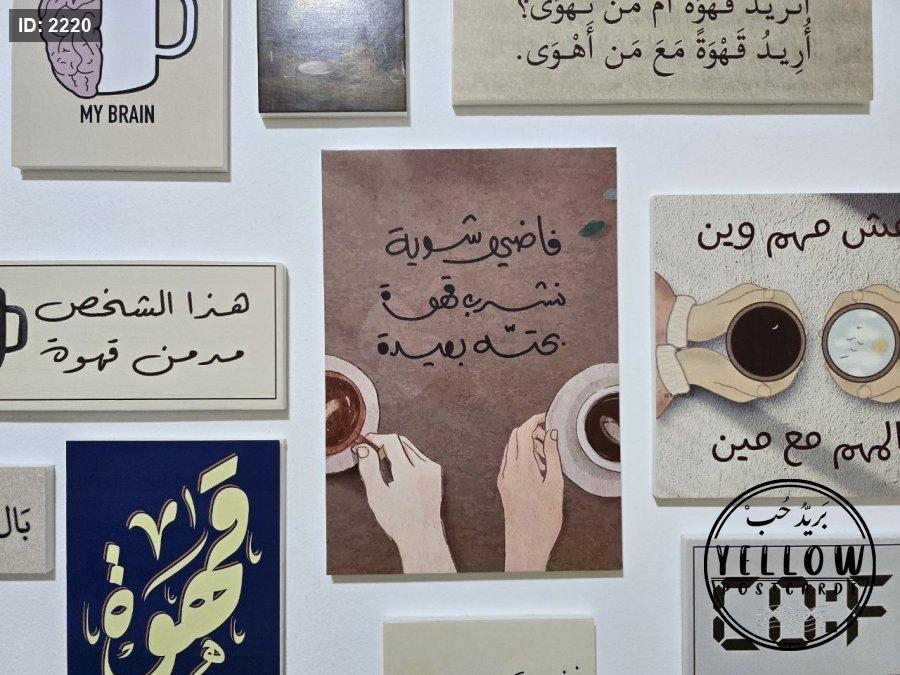 ID: 2220
MY BRAIN
أتريد قهوة أم من تهوى؟
أُرِيدُ قَهْوَةً مَعَ مَن أَهْوَى.
فاضي شوية
نشرب قهوة
بحتّه بعيدة
مش مهم وين
المهم مع مين
هذا الشخص
مدمن قهوة
قهوة
بَرِيدُ حُبْ
YELLOW
POSTCARDE